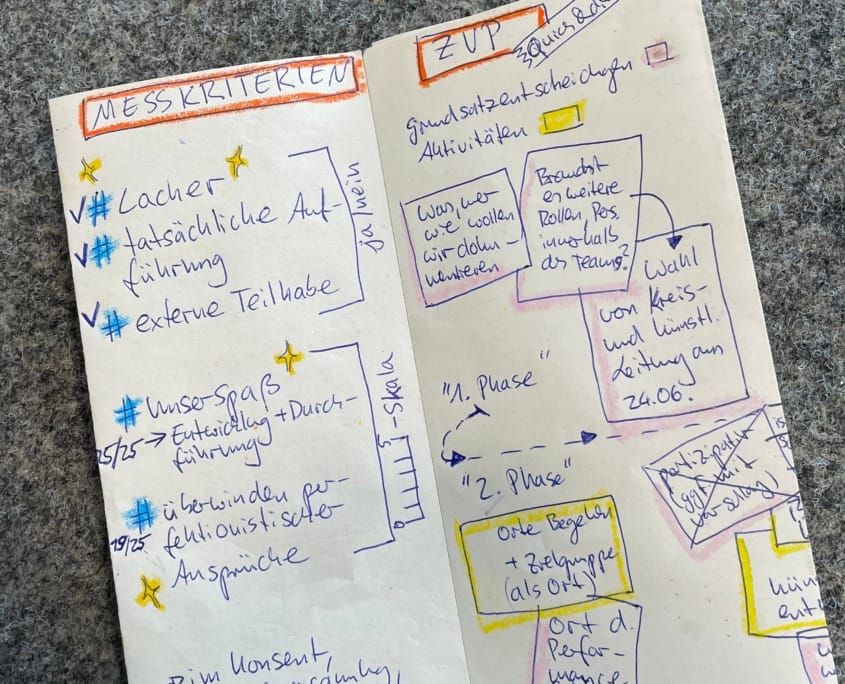 MESSKRITERIEN
# Lacher
# tatsächliche Auf-
führung
# externe Teilhabe
ja/nein
# unser Spaß
25/25 → Entwicklg + Durch-
führung
# überwinden per-
fektionistischer
19/25
Ansprüche
0 5-Skala
im Konsent,
ZVP
Grundsatzentscheidgen
Aktivitäten
Was, wer
wie wollen
wir doku-
mentieren
Brauchst
es weitere
Rollen, Pers.
innerhalb
des Teams?
Wahl
von Kreis-
und künstl.
Leitung am
24.06.
"1. Phase"
"2. Phase"
partizipativ
(ggf. mit
Vorschlag)
Orte Begehen
+ Zielgruppe
(als Ort)
Ort d.
Perfor-
mance